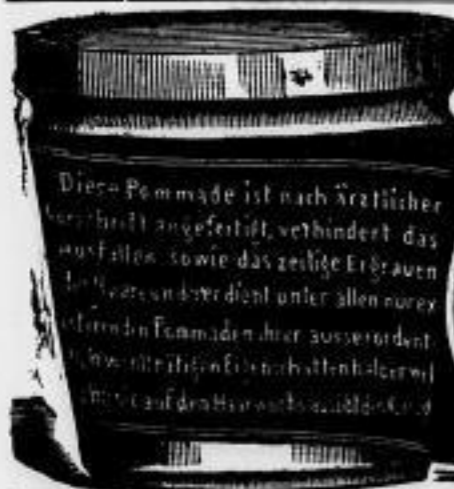 Diese Pommade ist nach ärztlicher
Vorschrift angefertigt, verhindert das
Ausfallen sowie das zeitige Ergrauen
der Haare und verdient unter allen nurex
istirenden Pommaden ihrer ausserordent
Eigenschaften halber
auf den Haarwuchs